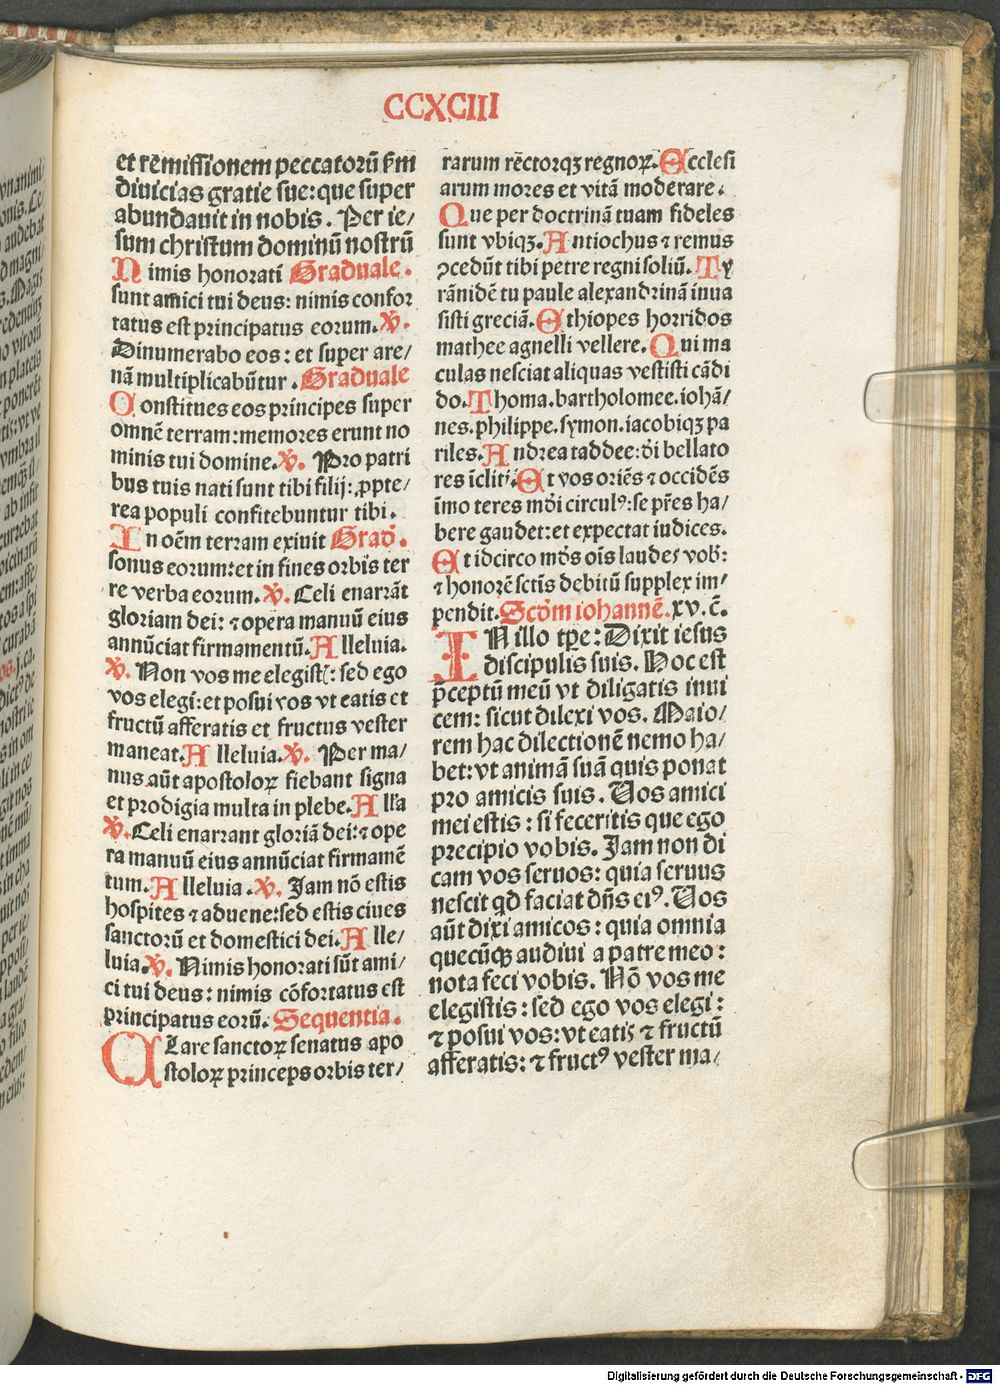 CCXCIII
et rēmissionem peccatorū scḋm
diuicias gratie sue: que super
abundauit in nobis. Per ie/
sum christum dominū nostrū
Nimis honorati Graduale.
sunt amici tui deus: nimis confor
tatus est principatus eorum. V.
Dinumerabo eos: et super are/
nā multiplicabūtur. Graduale
Constitues eos principes super
omnē terram: memores erunt no
minis tui domine. V. Pro patri
bus tuis nati sunt tibi filij: ꝓpte/
rea populi confitebuntur tibi.
In oēm terram exiuit Grad̄.
sonus eorum: et in fines orbis ter
re verba eorum. V. Celi enarrāt
gloriam dei: ⁊ opera manuū eius
annūciat firmamentū. Alleluia.
V. Non vos me elegist̄: sed ego
vos elegi: et posui vos vt eatis et
fructū afferatis et fructus vester
maneat. Alleluia. V. Per ma/
nus aūt apostoloꝝ fiebant signa
et prodigia multa in plebe. All'a
V. Celi enarrant gloriā dei: ⁊ ope
ra manuū eius annūciat firmamē
tum. Alleluia. V. Jam nō estis
hospites ⁊ aduene: sed estis ciues
sanctorū et domestici dei. Alle/
luia. V. Nimis honorati sūt ami/
ci tui deus: nimis cōfortatus est
principatus eorū. Sequentia.
Clare sanctoꝝ senatus apo
stoloꝝ princeps orbis ter/
rarum rēctorqꝫ regnoꝝ. Ecclesi
arum mores et vitā moderare.
Que per doctrinā tuam fideles
sunt vbiqꝫ. Antiochus ⁊ remus
ꝯcedūt tibi petre regni soliū. Ty
rānidē tu paule alexandrinā inua
sisti greciā. Ethiopes horridos
mathee agnelli vellere. Qui ma
culas nesciat aliquas vestisti cādi
do. Thoma. bartholomee. iohā/
nes. philippe. symon. iacobiqꝫ pa
riles. Andrea taddee: d̄i bellato
res icliti. Et vos oriēs ⁊ occidēs
īmo teres mōi circulꝰ: se p̄res ha/
bere gaudet: et expectat iudices.
Et idcirco mōs oīs laudes vob:
⁊ honorē sctīs debitū supplex im/
pendit. Scḋm iohannē. xv. c̄.
IN illo tp̄e: Dixit iesus
discipulis suis. Hoc est
p̄ceptū meū vt diligatis inui
cem: sicut dilexi vos. Maio/
rem hac dilectionē nemo ha/
bet: vt animā suā quis ponat
pro amicis suis. Vos amici
mei estis: si feceritis que ego
precipio vobis. Jam non di
cam vos seruos: quia seruus
nescit qd faciat dn̄s eiꝰ. Vos
aūt dixi amicos: quia omnia
quecūqꝫ audiui a patre meo:
nota feci vobis. Nō vos me
elegistis: sed ego vos elegi:
⁊ posui vos: vt eatis ⁊ fructū
afferatis: ⁊ fructꝰ vester ma/
Digitalisierung gefördert durch die Deutsche Forschungsgemeinschaft - DFG